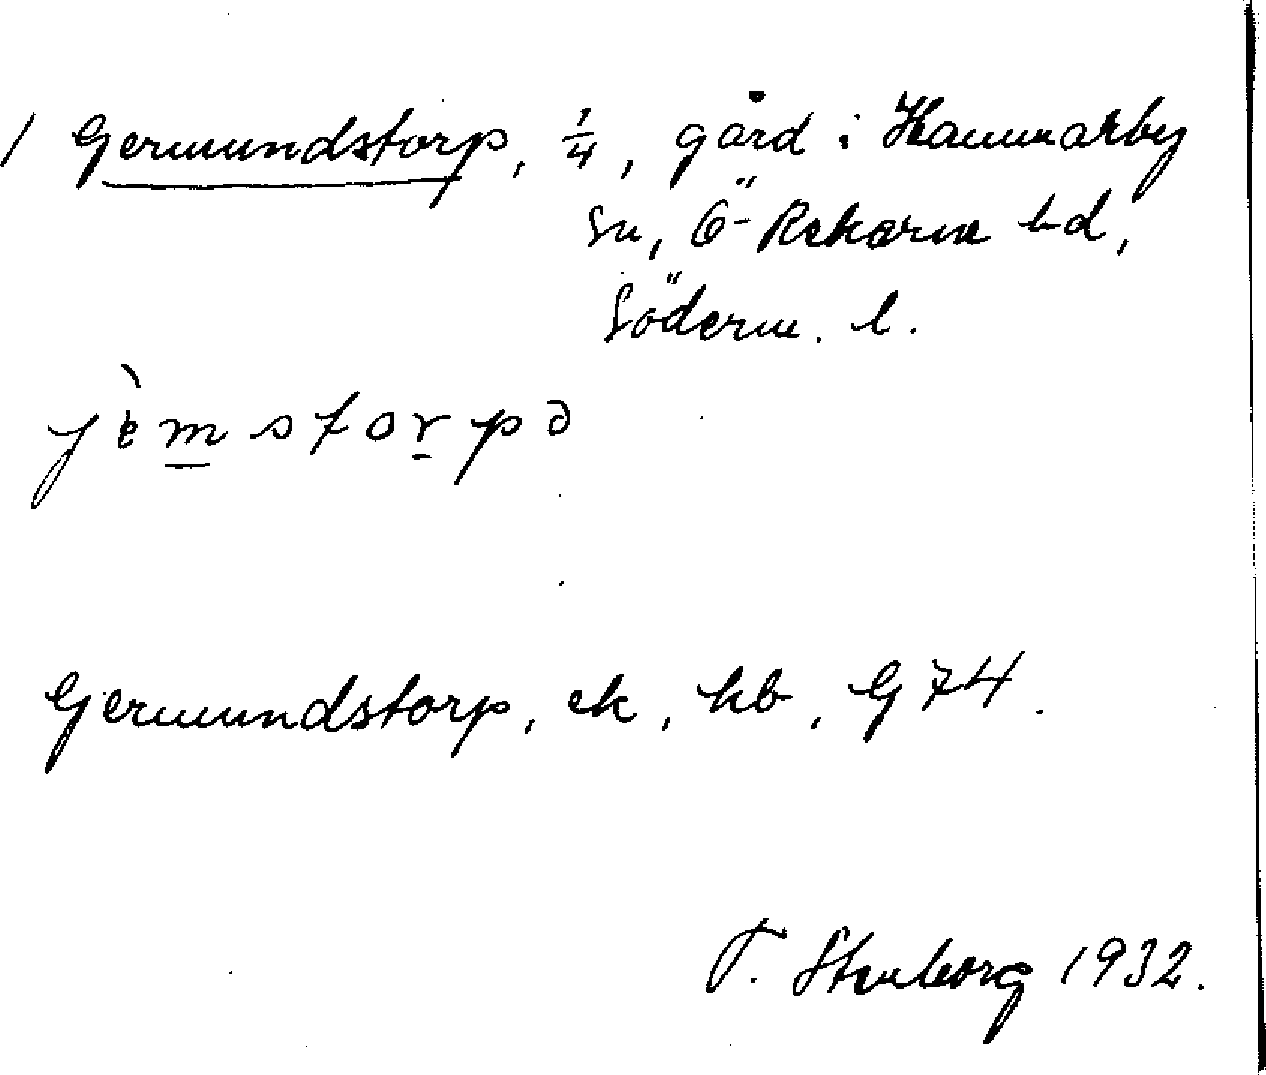 1 Germundstorp, 1/4, gård i Hammarby
sn, Ö-Rekarne hd,
Söderm. l.
jèmstorpə
Germundstorp, ek, kb, G74.
T. Stenborg 1932.